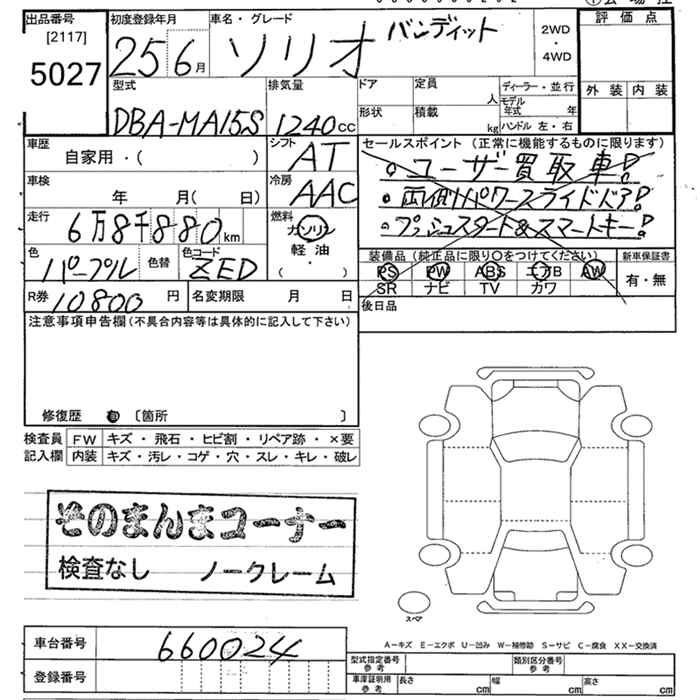 出品番号
[2117]
5027
初度登録年月
25 6月
車名・グレード
ソリオ バンディット
2WD
・
4WD
評価点
外装 内装
型式
DBA-MA15S
排気量
1240cc
ドア
形状
定員
人
積載
kg
ディーラー・並行
モデル年式 年
ハンドル 左・右
車歴
自家用・( )
シフト
AT
車検
年 月( 日)
冷房
AAC
セールスポイント (正常に機能するものに限ります)
。ユーザー買取車!
・両側パワースライドドア!
・プッシュスタート&スマートキー!
走行
6万8千880km
燃料
ガソリン
軽油
( ・ )
色
パープル
色替
色コード
ZED
装備品 (純正品に限り○をつけてください)
PS PW ABS エアB AW
SR ナビ TV カワ
新車保証書
有・無
R券 10800円
名変期限 月 日
後日品
注意事項申告欄(不具合内容等は具体的に記入して下さい)
修復歴 [箇所 ]
検査員 FW キズ・飛石・ヒビ割・リペア跡・×要
記入欄 内装 キズ・汚レ・コゲ・穴・スレ・キレ・破レ
そのまんまコーナー
検査なし ノークレーム
スペア
A-キズ E-エクボ U-凹み W-補修跡 S-サビ C-腐食 XX-交換済
車台番号 660024
登録番号
型式指定番号 参考
類別区分番号 参考
車庫証明用 参考
長さ cm 幅 cm 高さ cm